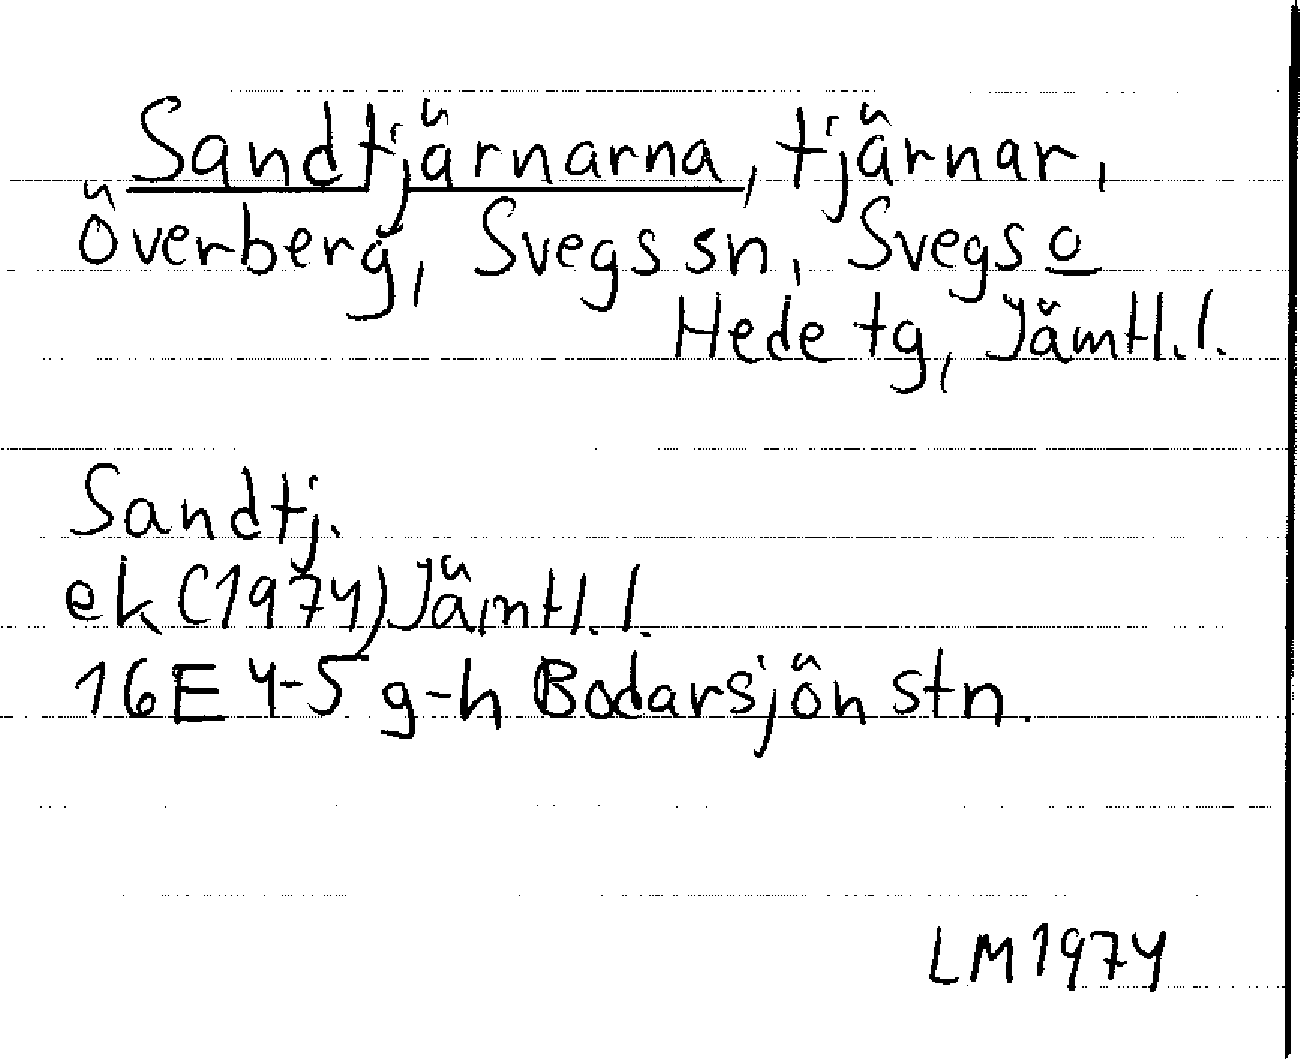 Sandtjärnarna, tjärnar,
Överberg, Svegs sn, Svegs o
Hede tg, Jämtl.l.
Sandtj.
ek (1974) Jämtl.l.
16E 4-5 g-h Bodarsjön stn.
LM 1974